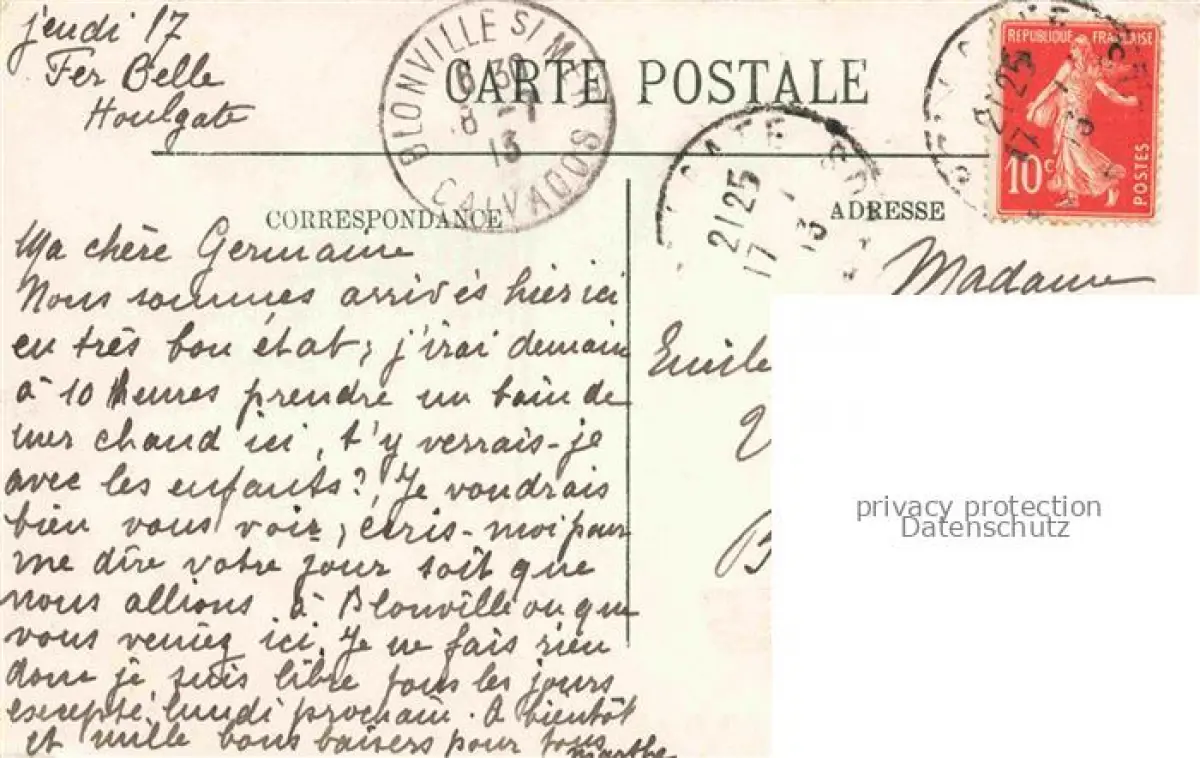 jeudi 17
Fer Belle
Houlgate
BLONVILLE S/ MER
6 30
8 - 7
13
CALVADOS
CARTE POSTALE
REPUBLIQUE FRANÇAISE
10c
POSTES
21 25
17 - 7
13
21 25
17 - 7
13
CORRESPONDANCE
ADRESSE
Ma chère Germaine
Nous sommes arrivés hier ici
en très bon état, j'irai demain
à 10 heures prendre un bain de
mer chaud ici, t'y verrais-je
avec les enfants? Je voudrais
bien vous voir, écris-moi pour
me dire votre jour soit que
nous allions à Blonville ou que
vous veniez ici. Je ne fais rien
donc je suis libre tous les jours
excepté lundi prochain. A bientôt
et mille bons baisers pour tous
Marthe
Madame
Emile
privacy protection
Datenschutz